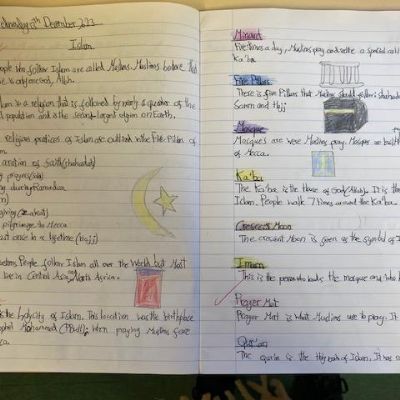 Wednesday 13th December 2023
Islam
people who follow Islam are called Muslims. Muslims believe that
there is only one God, Allah.
Islam is a religion that is followed by nearly a quarter of the
world population and is the second largest religion on Earth.
religious practices of Islam are outlined in the Five Pillars of
Declaration of faith (shahadah)
during Ramadan
giving (zakat)
pilgrimage to Mecca
least once in a lifetime (hajj)
People follow Islam all over the world but most
live in Central Asia and North Africa.
is the holy city of Islam. This location was the birthplace
Prophet Muhammad (PBUH). When praying Muslims face
Mecca.
Minaret
Five times a day, Muslims pray and
Ka'ba
Five Pillars
There is five Pillars that Muslims follow: shahadah
Sawm and Hajj
Mosque
Mosque's are were Muslims pray. Mosque are
of Mecca.
Ka'ba
The Ka'ba is the House of God (Allah). It is the
Islam. People walk 7 times around the Ka'ba.
Crescent Moon
The crescent Moon is seen as the symbol of I
Imam
This is the person who leads the mosque and
Prayer Mat
Prayer Mat is what Muslims use to pray. It
Qur'an
The quran is the Holy book of Islam. It has